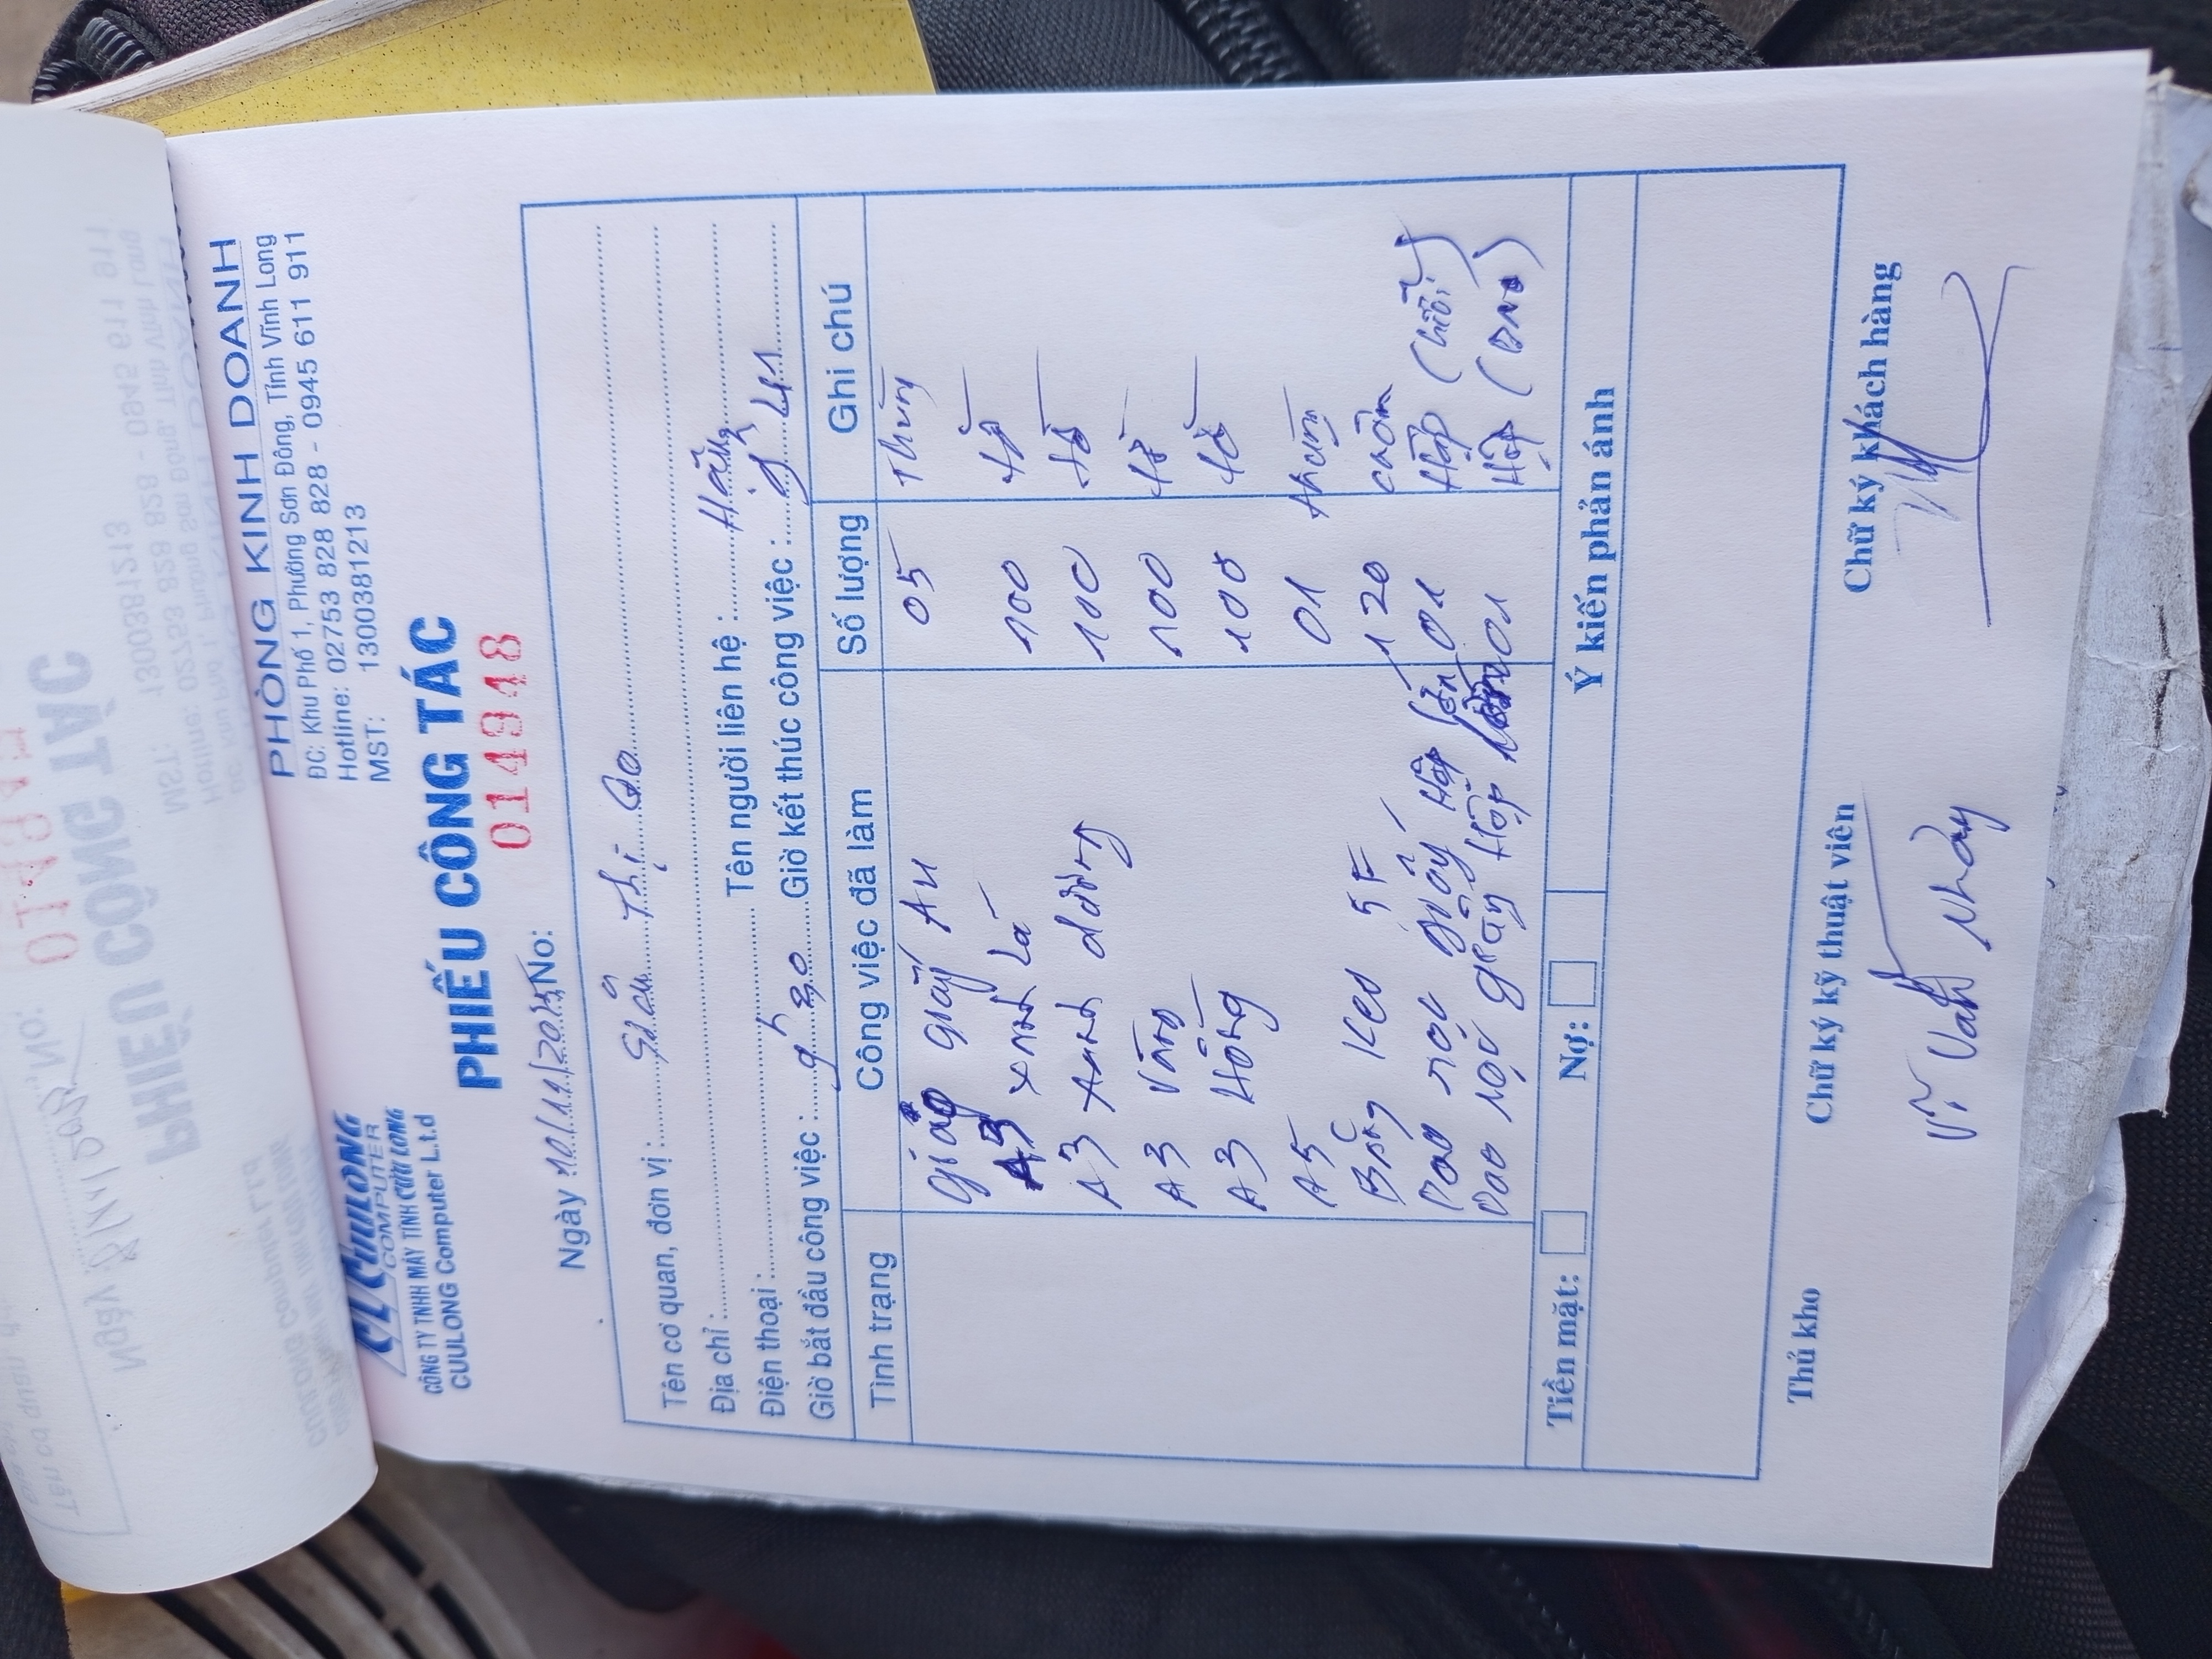 CL CUULONG
COMPUTER
CÔNG TY TNHH MÁY TÍNH CỬU LONG
CUULONG Computer L.t.d
PHÒNG KINH DOANH
ĐC: Khu Phố 1, Phường Sơn Đông, Tỉnh Vĩnh Long
Hotline: 02753 828 828 - 0945 611 911
MST: 1300381213
PHIẾU CÔNG TÁC
Ngày 10/11/2025 No: 014948
Tên cơ quan, đơn vị: Thị
Địa chỉ:
Điện thoại: Tên người liên hệ: Hằng
Giờ bắt đầu công việc: 9h 20 Giờ kết thúc công việc: 9h 41
Tình trạng Công việc đã làm Số lượng Ghi chú
giấy A4 05 Thùng
A3 xanh Lá 100 tờ
A3 xanh dương 100 tờ
A3 Vàng 100 tờ
A3 Hồng 100 tờ
A5 01 thùng
Băng keo 5F 120 cuộn
Dao rọc giấy Hộp lớn 01 Hộp
Dao rọc giấy Hộp 01 Hộp
Tiền mặt: Nợ: Ý kiến phản ánh
Thủ kho Chữ ký kỹ thuật viên Chữ ký khách hàng
Văn